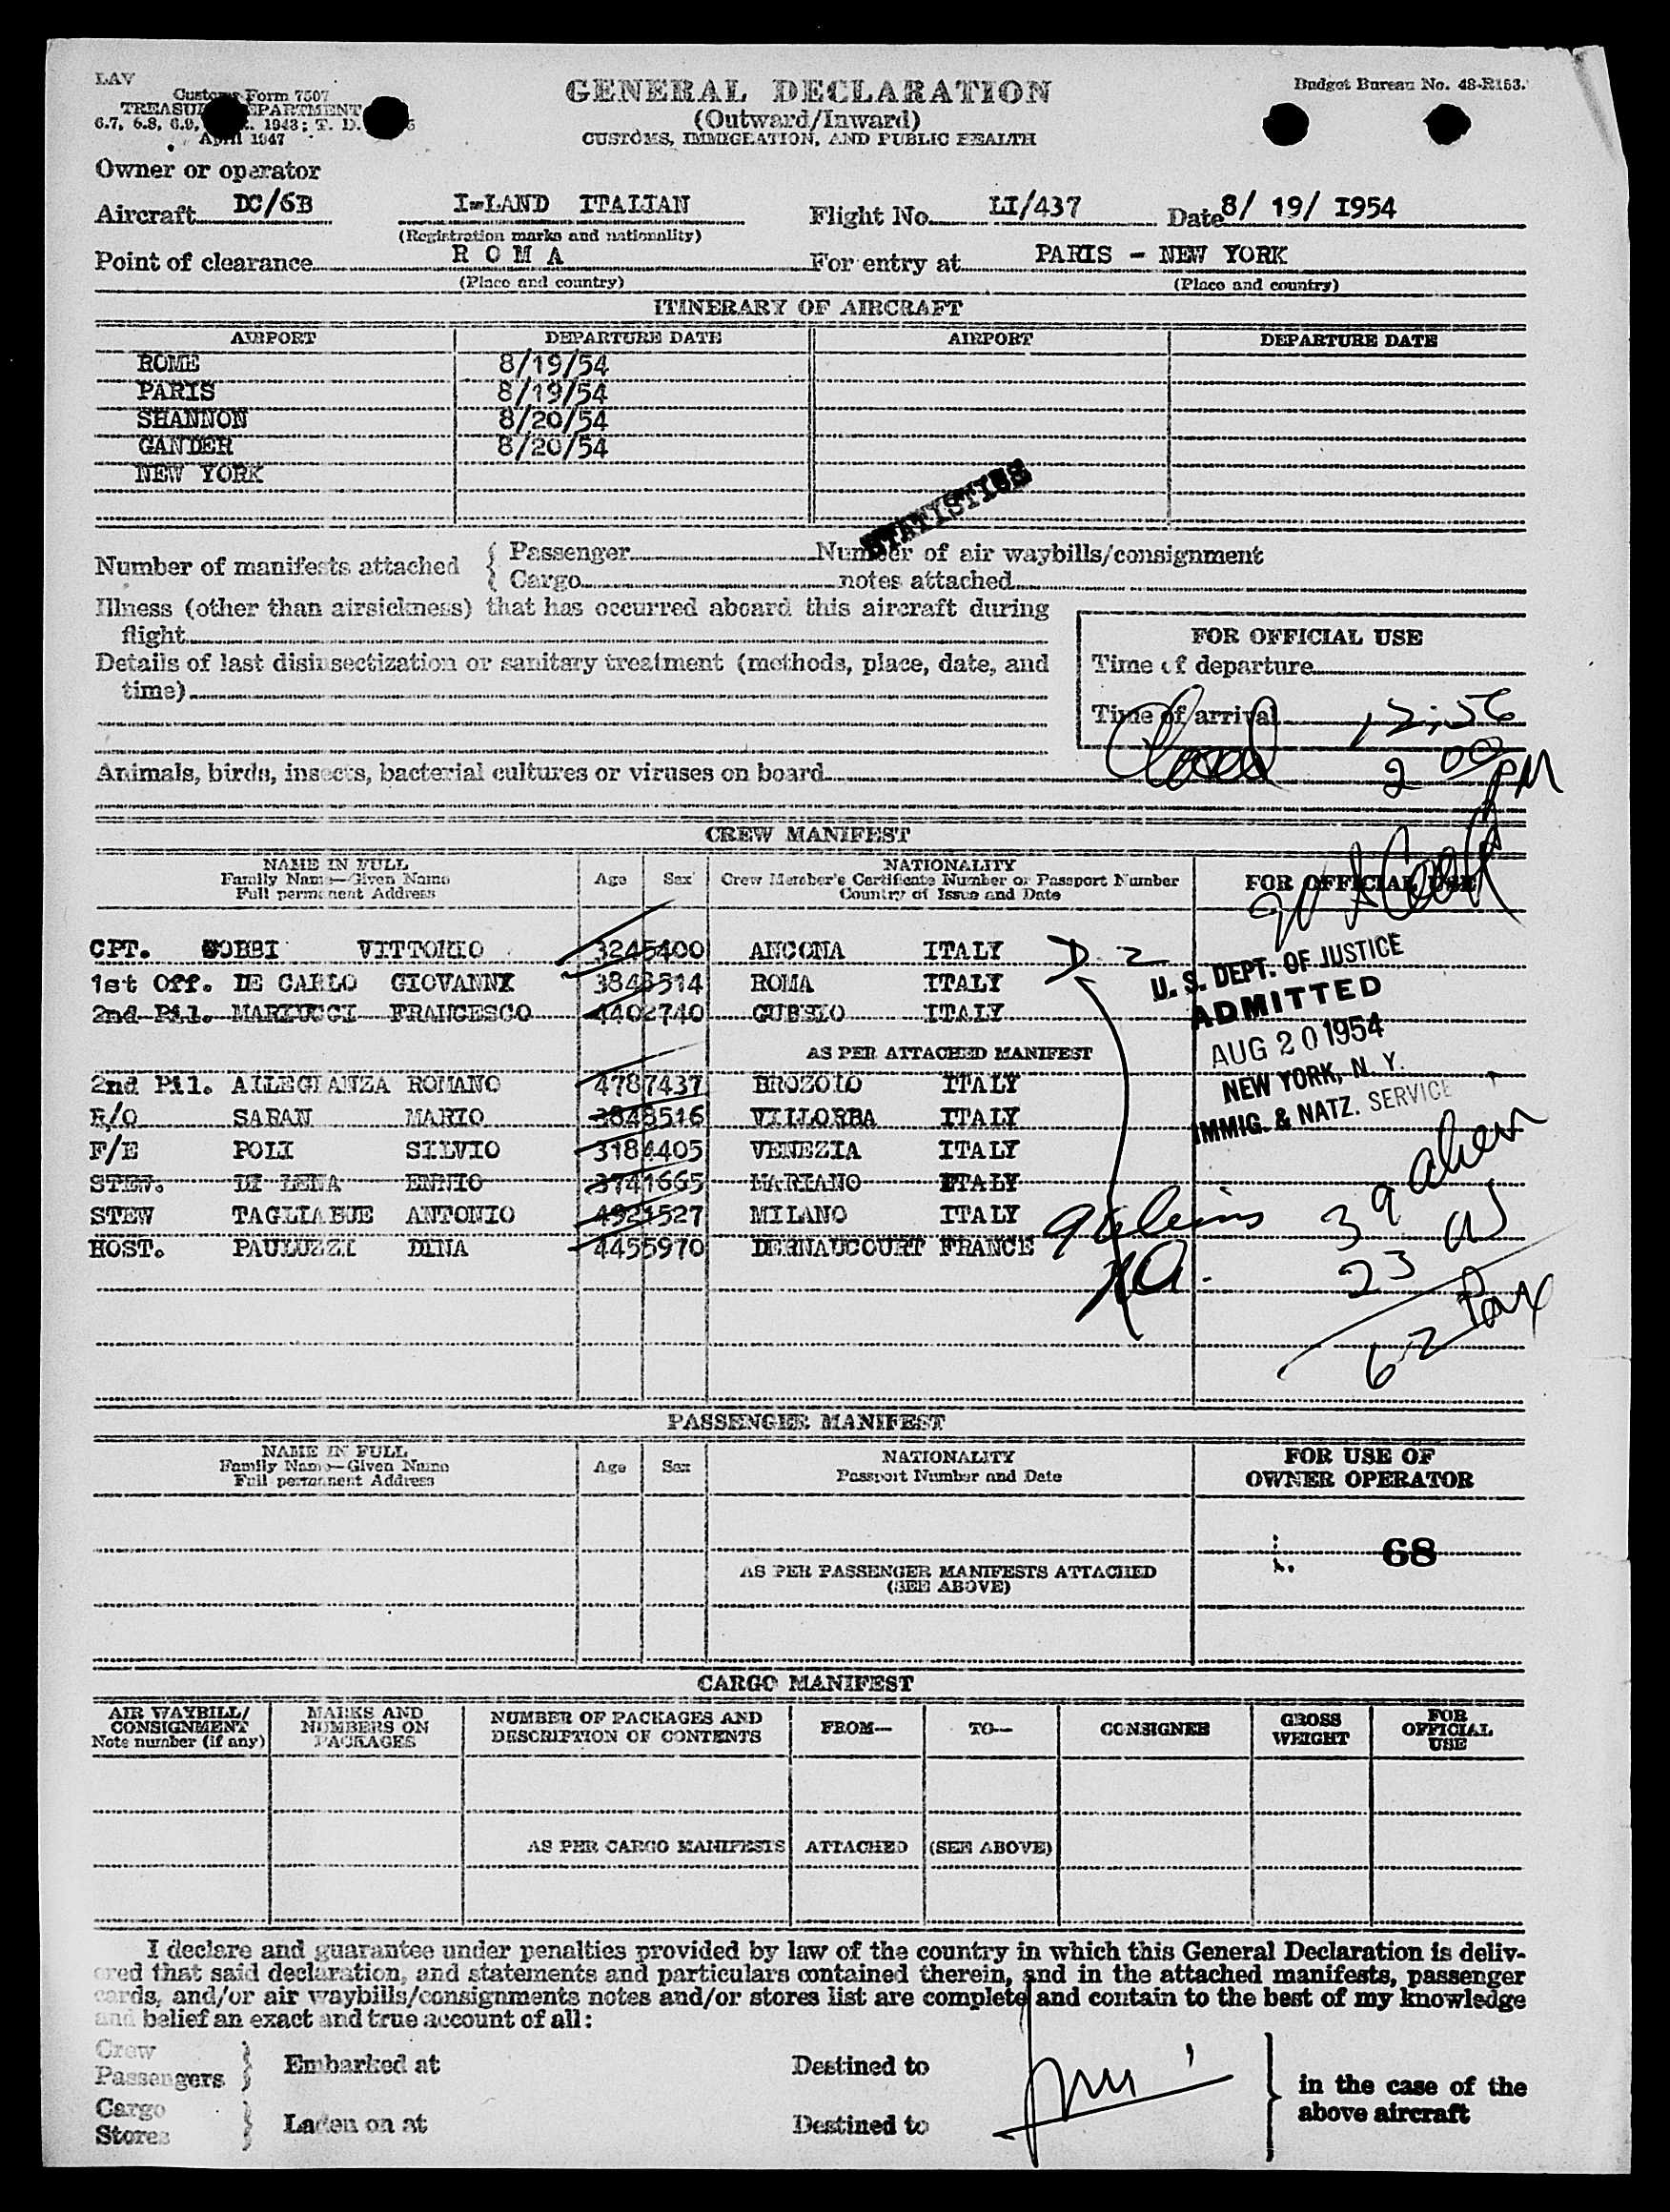 LAV
Customs Form 7507
TREASURY DEPARTMENT
6.7, 6.8, 6.9, 1943; T. D.
April 1947
GENERAL DECLARATION
(Outward/Inward)
CUSTOMS, IMMIGRATION, AND PUBLIC HEALTH
Budget Bureau No. 48-R153.
Owner or operator
Aircraft DC/6B I-LAND ITALIAN Flight No. LI/437 Date 8/ 19/ 1954
(Registration marks and nationality)
Point of clearance R O M A For entry at PARIS - NEW YORK
(Place and country) (Place and country)
ITINERARY OF AIRCRAFT
AIRPORT DEPARTURE DATE AIRPORT DEPARTURE DATE
ROME 8/19/54
PARIS 8/19/54
SHANNON 8/20/54
GANDER 8/20/54
NEW YORK
STATISTICS
Number of manifests attached { Passenger Number of air waybills/consignment
{ Cargo notes attached
Illness (other than airsickness) that has occurred aboard this aircraft during
flight
FOR OFFICIAL USE
Details of last disinsectization or sanitary treatment (methods, place, date, and
time)
Time of departure
Time of arrival 12:56
Closed 2 00 PM
Animals, birds, insects, bacterial cultures or viruses on board
CREW MANIFEST
NAME IN FULL
Family Name—Given Name
Full permanent Address
Age Sex
NATIONALITY
Crew Member's Certificate Number or Passport Number
Country of Issue and Date
FOR OFFICIAL USE
CPT. VITTORIO 3245400 ANCONA ITALY D. 2
1st Off. DE CARLO GIOVANNI 3843514 ROMA ITALY
2nd Pil. MARTUCCI FRANCESCO 4402740 GUBBIO ITALY
AS PER ATTACHED MANIFEST
2nd Pil. ALLEGIANZA ROMANO 4787437 BROZOLO ITALY
R/O SARAN MARIO 3848516 VILLORBA ITALY
F/E POLI SILVIO 3184405 VENEZIA ITALY
STEW. DI LENA ENNIO 3741665 MARIANO ITALY
STEW TAGLIABUE ANTONIO 4921527 MILANO ITALY
HOST. PAULUZZI DINA 4455970 DERNAUCOURT FRANCE
U. S. DEPT. OF JUSTICE
ADMITTED
AUG 20 1954
NEW YORK, N. Y.
IMMIG. & NATZ. SERVICE
39 alien
23
62 Pax
PASSENGER MANIFEST
NAME IN FULL
Family Name—Given Name
Full permanent Address
Age Sex
NATIONALITY
Passport Number and Date
FOR USE OF
OWNER OPERATOR
68
AS PER PASSENGER MANIFESTS ATTACHED
(SEE ABOVE)
CARGO MANIFEST
AIR WAYBILL/
CONSIGNMENT
Note number (if any)
MARKS AND
NUMBERS ON
PACKAGES
NUMBER OF PACKAGES AND
DESCRIPTION OF CONTENTS
FROM—
TO—
CONSIGNEE
GROSS
WEIGHT
FOR
OFFICIAL
USE
AS PER CARGO MANIFESTS ATTACHED (SEE ABOVE)
I declare and guarantee under penalties provided by law of the country in which this General Declaration is deliv-
ered that said declaration, and statements and particulars contained therein, and in the attached manifests, passenger
cards, and/or air waybills/consignments notes and/or stores list are complete and contain to the best of my knowledge
and belief an exact and true account of all:
Crew
Passengers } Embarked at Destined to
Cargo
Stores } Laden on at Destined to
} in the case of the
above aircraft